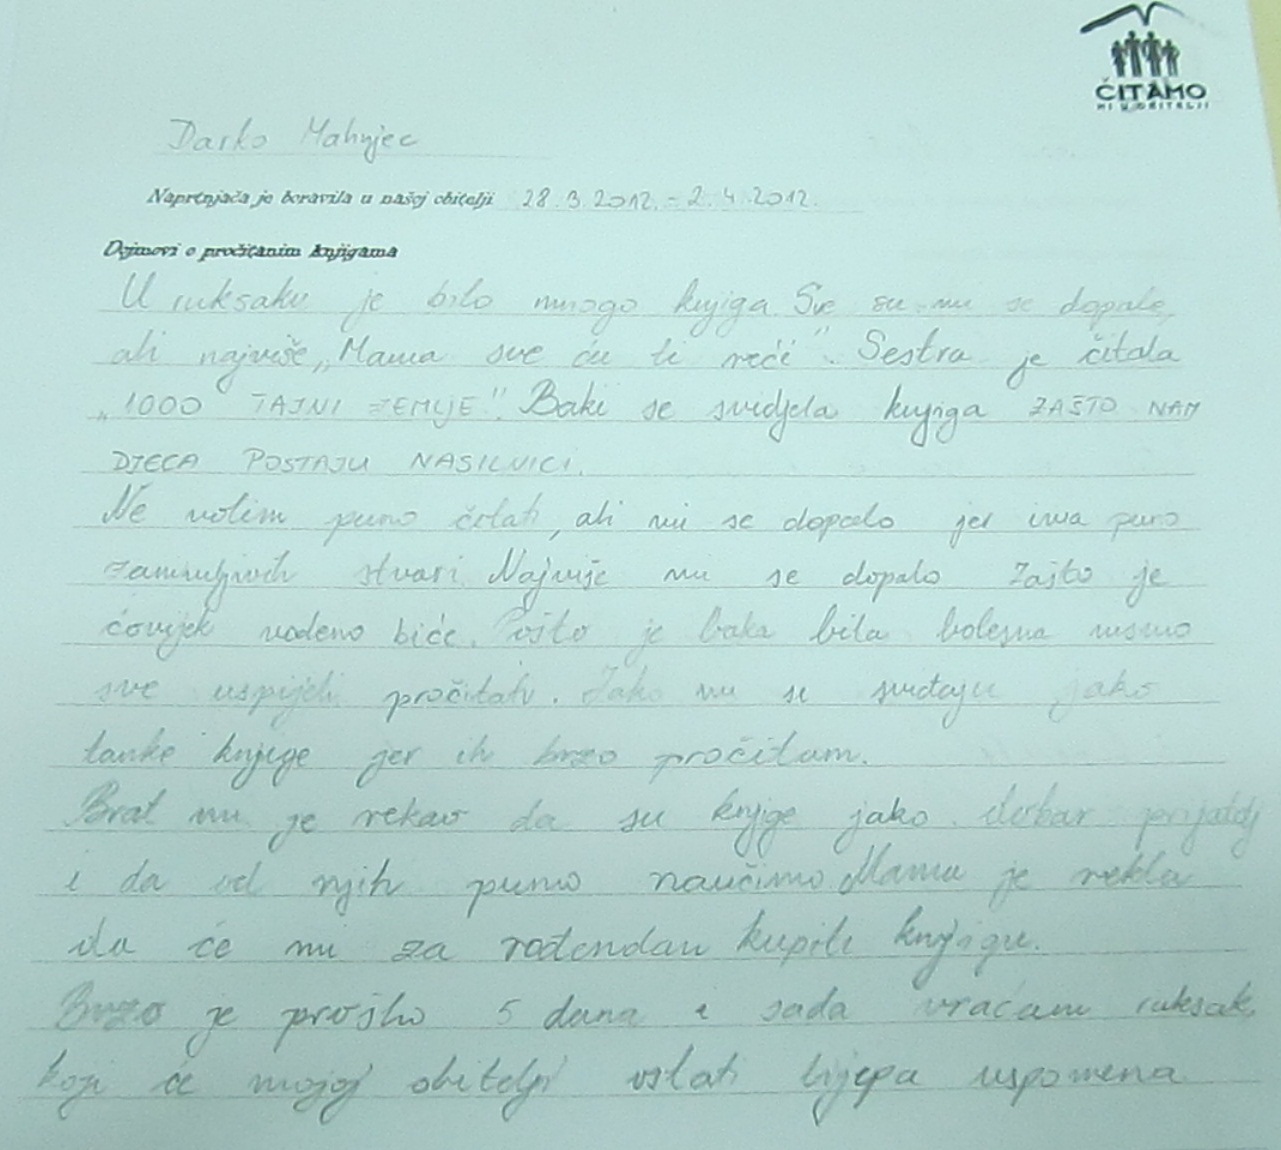 ČITAMO
MI U OBITELJI
Darko
Naprtnjača je boravila u našoj obitelji 28.3.2012. - 2.4.2012.
Dojmovi o pročitanim knjigama
U ruksaku je bilo mnogo knjiga. Sve su mi se dopale,
ali najviše „Mama sve ću ti reći". Sestra je čitala
„1000 TAJNI ZEMLJE". Baki se svidjela knjiga ZAŠTO NAM
DJECA POSTAJU NASILNICI.
Ne volim puno čitati, ali mi se dopalo jer ima puno
zanimljivih stvari. Najviše mi se dopalo zašto je
čovijek vodeno biće. Pošto je baka bila bolesna nismo
sve uspijeli pročitati. Jako mi se sviđaju jako
tanke knjige jer ih brzo pročitam.
Brat mi je rekao da su knjige jako dobar prijatelj
i da od njih puno naučimo. Mama je rekla
da će mi za rođendan kupiti knjigu.
Brzo je prošlo 5 dana i sada vraćam ruksak,
koji će mojoj obitelji ostati lijepa uspomena